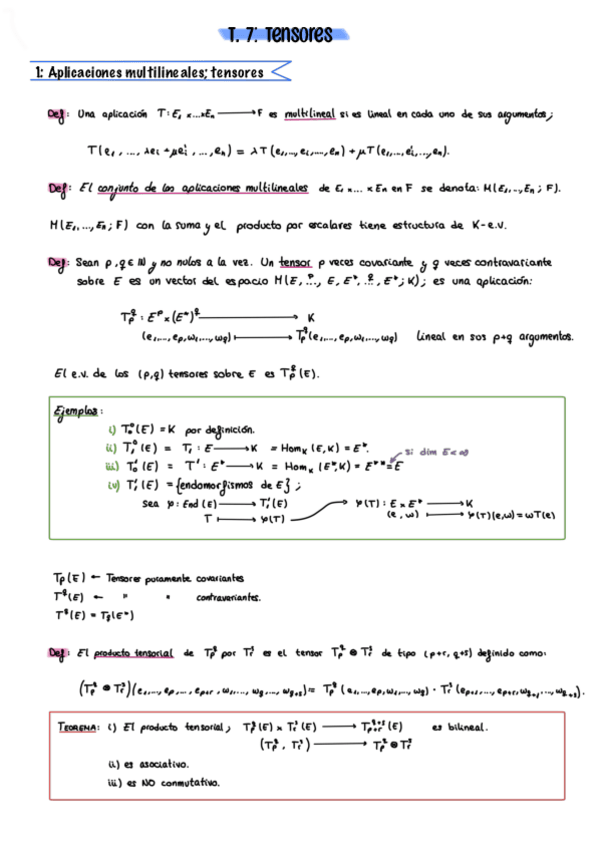 T. 7: Tensores
1: Aplicaciones multilineales; tensores
Def: Una aplicación T: E₁ x...xEₙ ⟶ F es multilineal si es lineal en cada uno de sus argumentos;
T(e₁, ..., λeᵢ + μeᵢ', ..., eₙ) = λT(e₁,..., eᵢ,..., eₙ) + μT(e₁,..., eᵢ',..., eₙ).
Def: El conjunto de las aplicaciones multilineales de E₁ x... x Eₙ en F se denota: M(E₁,..., Eₙ; F).
M(E₁, ..., Eₙ; F) con la suma y el producto por escalares tiene estructura de K-e.v.
Def: Sean p, q ∈ ℕ y no nulos a la vez. Un tensor p veces covariante y q veces contravariante
sobre E es un vector del espacio M(E, .ᵖ., E, E*, .q., E*; K); es una aplicación:
T_p^q : E^p x (E*)^q ⟶ K
(e₁,..., e_p, ω₁,..., ω_q) ⟼ T_p^q(e₁,..., e_p, ω₁,..., ω_q) lineal en sus p+q argumentos.
El e.v. de los (p,q) tensores sobre E es T_p^q(E).
Ejemplos:
i) T₀⁰(E) = K por definición.
ii) T₁⁰(E) = T₁ : E ⟶ K = Hom_K(E, K) = E*.
si dim E < ∞
iii) T₀¹(E) = T¹ : E* ⟶ K = Hom_K(E*, K) = E** = E
iv) T₁¹(E) = {endomorfismos de E} ;
sea φ: End(E) ⟶ T₁¹(E) φ(T) : E x E* ⟶ K
T ⟼ φ(T) (e, ω) ⟼ φ(T)(e,ω) = ωT(e)
T_p(E) ← Tensores puramente covariantes
T^q(E) ← " " contravariantes.
T^q(E) = T_q(E*)
Def: El producto tensorial de T_p^q por T_r^s es el tensor T_p^q ⊗ T_r^s de tipo (p+r, q+s) definido como:
(T_p^q ⊗ T_r^s)(e₁,..., e_p, ..., e_{p+r}, ω₁,..., ω_q,..., ω_{q+s}) = T_p^q(e₁,..., e_p, ω₁,..., ω_q) · T_r^s(e_{p+1},..., e_{p+r}, ω_{q+1},..., ω_{q+s}).
TEOREMA: i) El producto tensorial, T_p^q(E) x T_r^s(E) ⟶ T_{p+r}^{q+s}(E) es bilineal.
(T_p^q, T_r^s) ⟶ T_p^q ⊗ T_r^s
ii) es asociativo.
iii) es NO conmutativo.